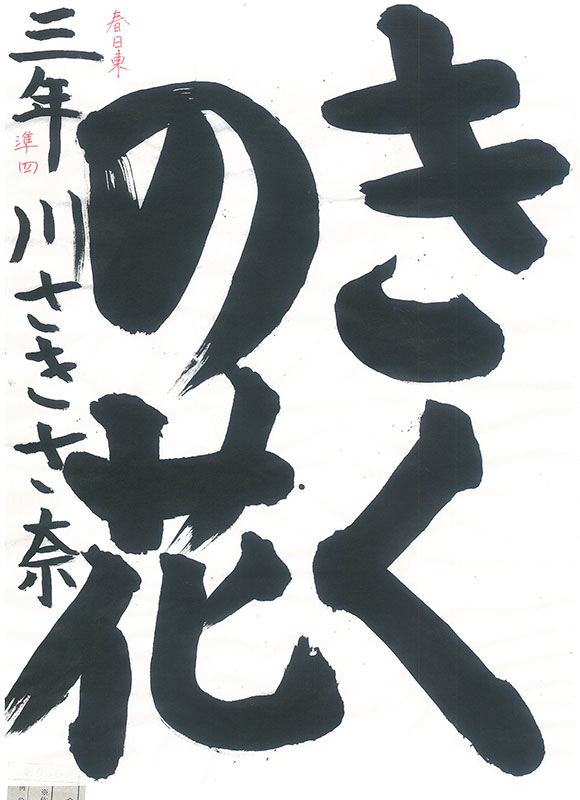 きく
の花
三年 川さきさき奈
春日東
準四